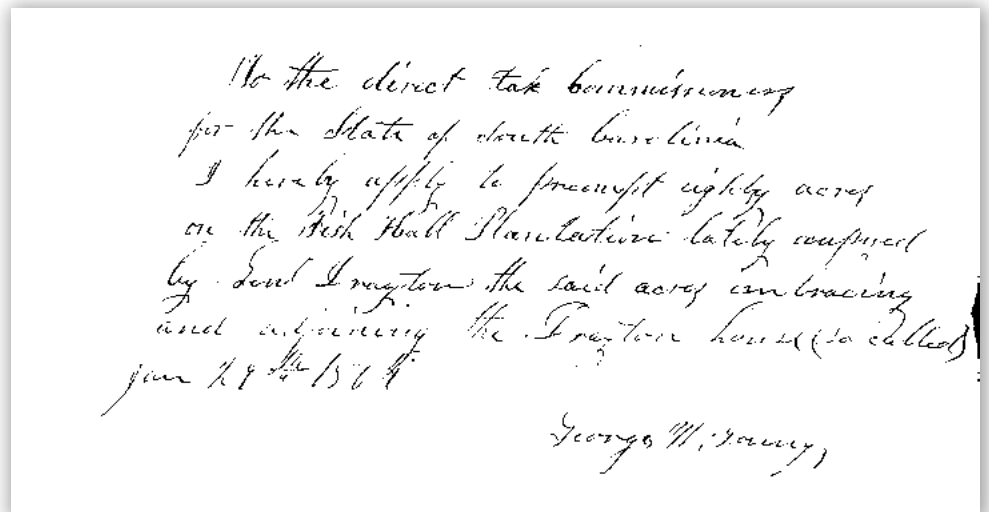 To the direct tax Commissioners
for the State of South Carolinia
I hereby apply to preempt eighty acres
on the Fish Hall Plantation lately
by Drayton the said acres imbracing
and adjoining the Drayton house (so called)
jan 29th 1864
George W. Young,